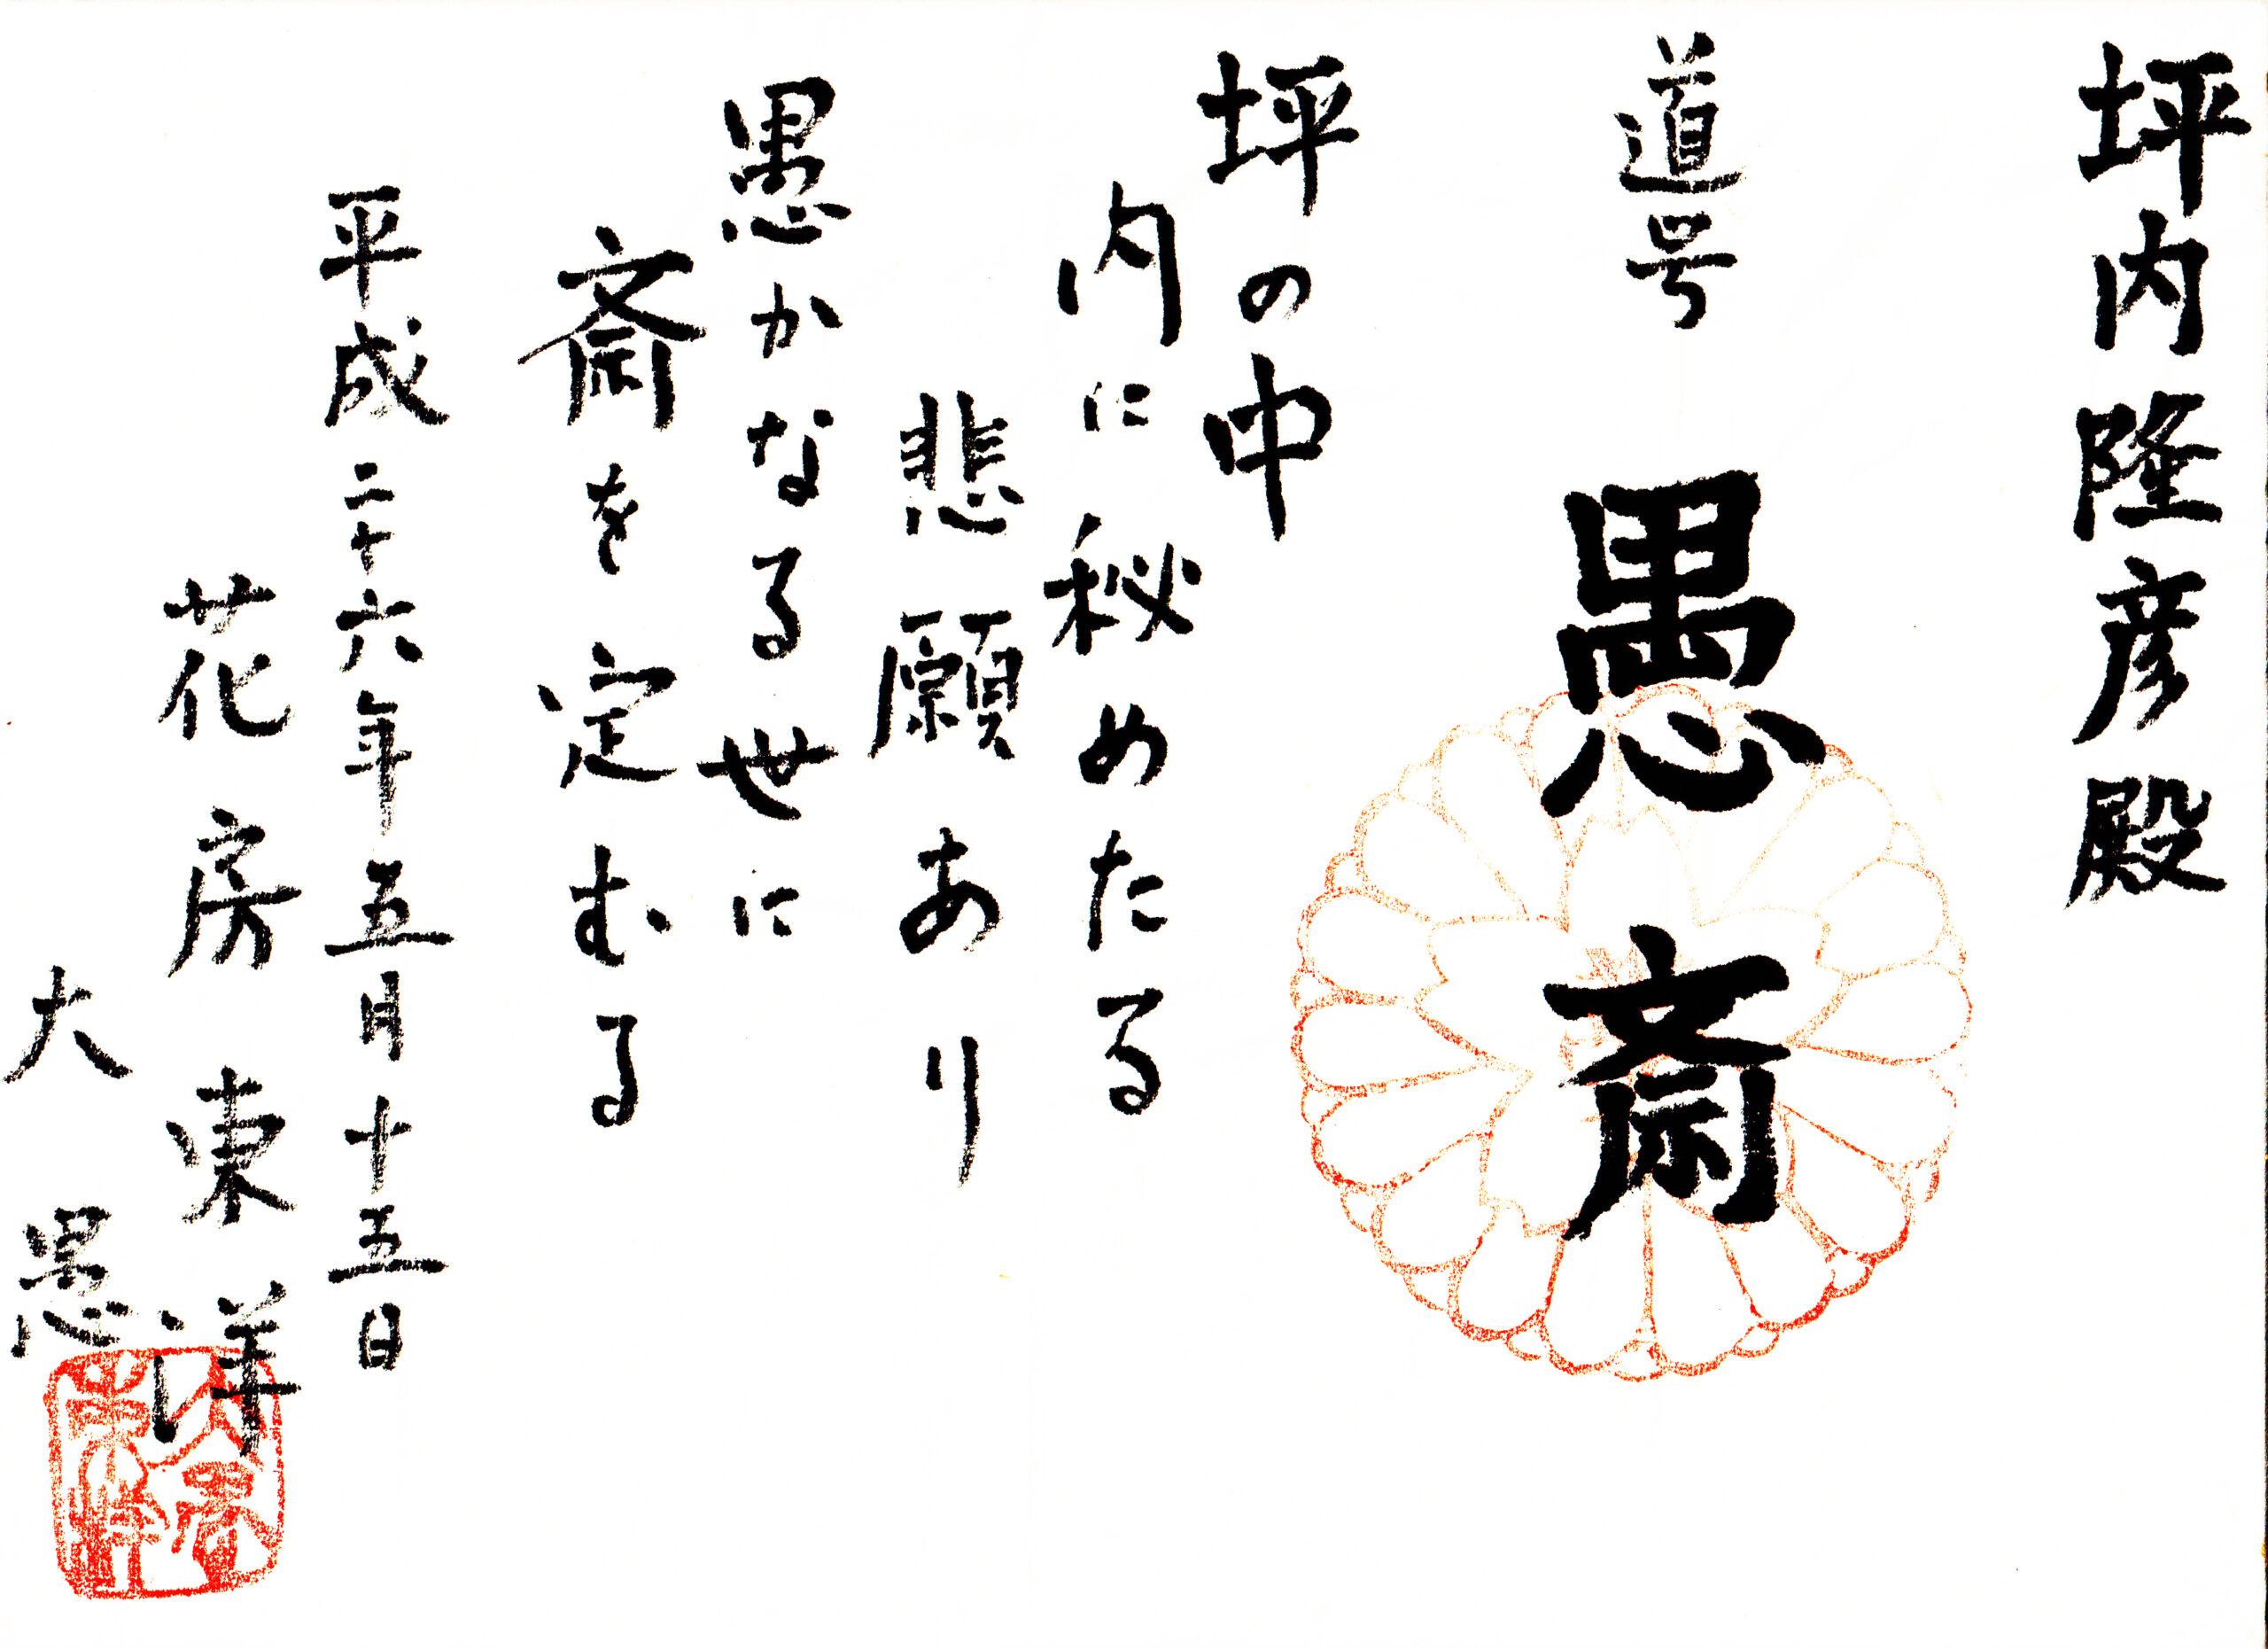 坪内隆彦殿
道号
愚斎
坪の中
内に秘めたる
悲願あり
愚かなる世に
斎を定むる
平成二十六年五月十五日
花房東洋
大愚